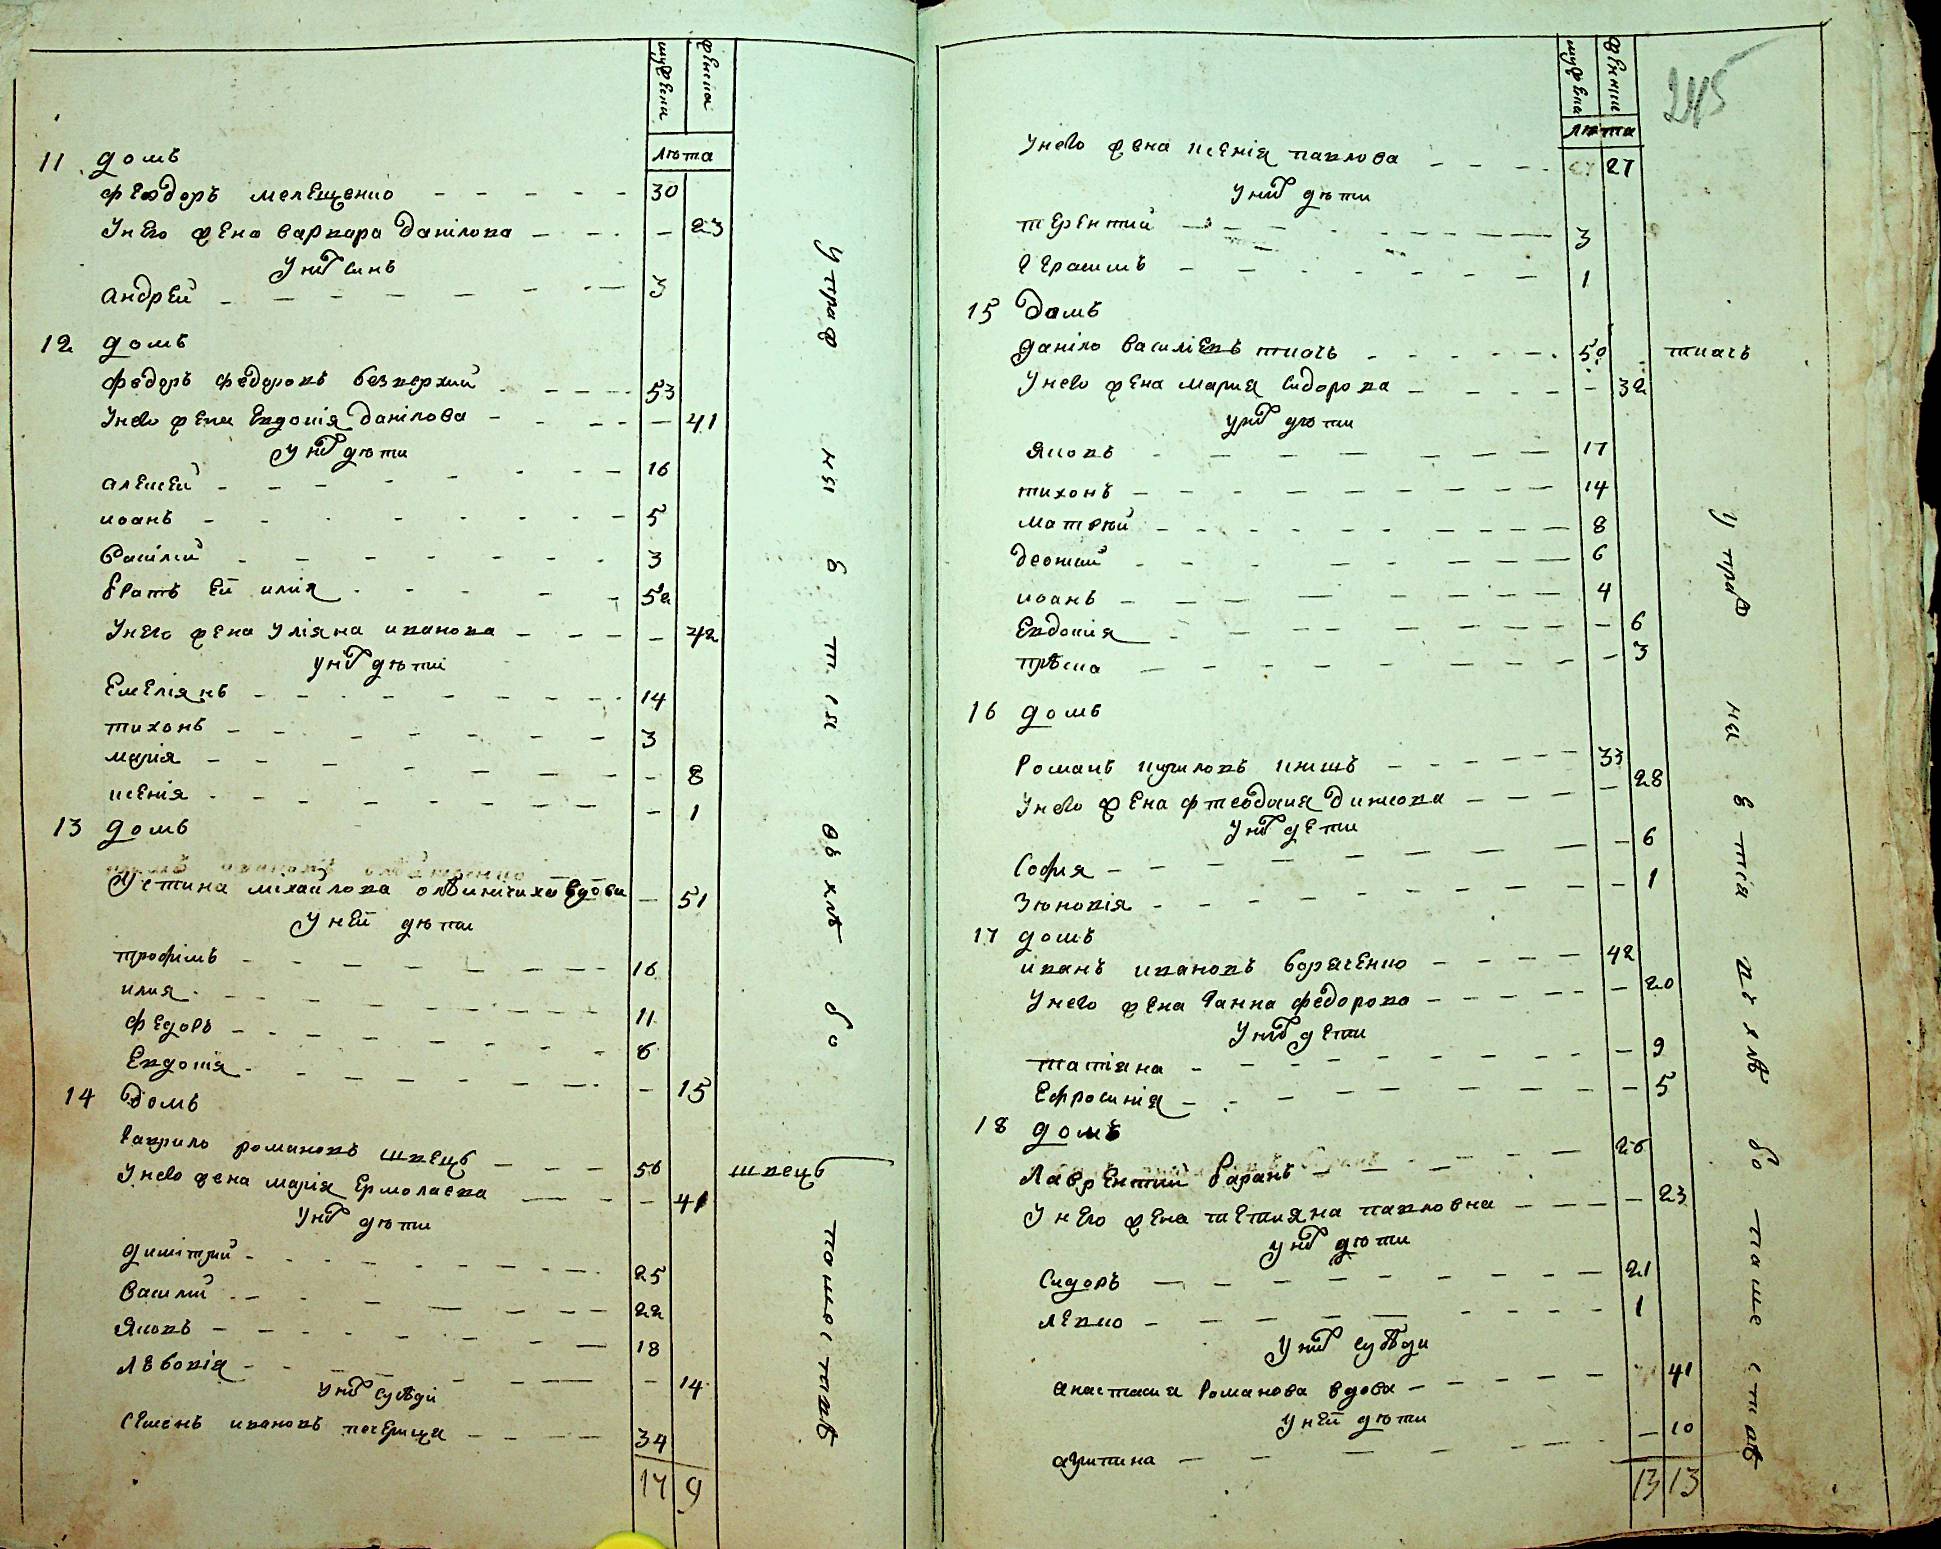 мужеска женска
лѣта
11 домъ
Феодоръ мелещенко 30
У него жена варвара данілова - 23
У них синъ
андрей 3
12 домъ
федоръ федоровъ безверхий 53
У него жена Евдокія данілова - 41
У них дѣти
алексей 16
иоанъ 5
василий 3
братъ ей илия 52
У него жена Уліяна иванова - 42
У них дѣти
Емеліянъ 14
тихонъ 3
марія - 8
ксенія - 1
13 домъ
Устина міхайлова вдова - 51
У ней дѣти
трофімъ 16
илия 11
федоръ 6
Евдокія - 15
14 домъ
гаврило романовъ швецъ 56 швецъ
У него жена марія Ермолаева - 41
У них дѣти
димітрий 25
Василий 22
Яковъ 18
- 14
У них сусѣди
Семенъ ивановъ 34
17 9
У праж не в т с я въ хлѣ бо пашествѣ
мужеска женска
лѣта
245
У него жена ксенія павлова 27
У них дѣти
терентий 3
герасимъ 1
15 домъ
даніло василіевъ ткачъ 50 ткачъ
У него жена мария сидорова - 32
У них дѣти
Яковъ 17
тихонъ 14
матфѣй 8
6
иоанъ 4
Евдокія - 6
- 3
16 домъ
Романъ книшъ 33
У него жена феодосия - 28
У них дети
София - 6
Зѣновія - 1
17 домъ
иванъ ивановъ 42
У него жена ганна федорова - 20
У них дети
татіяна - 9
Ефросинія - 5
18 домъ
Лаврентий баранъ 26
У него жена тетияна павловна - 23
У них дѣти
Сидоръ 21
левко 1
У них сусѣди
анастасия Романова вдова 41
У ней дѣти
- 10
13 13
У праж не в т с я въ хлѣ бо пашествѣ